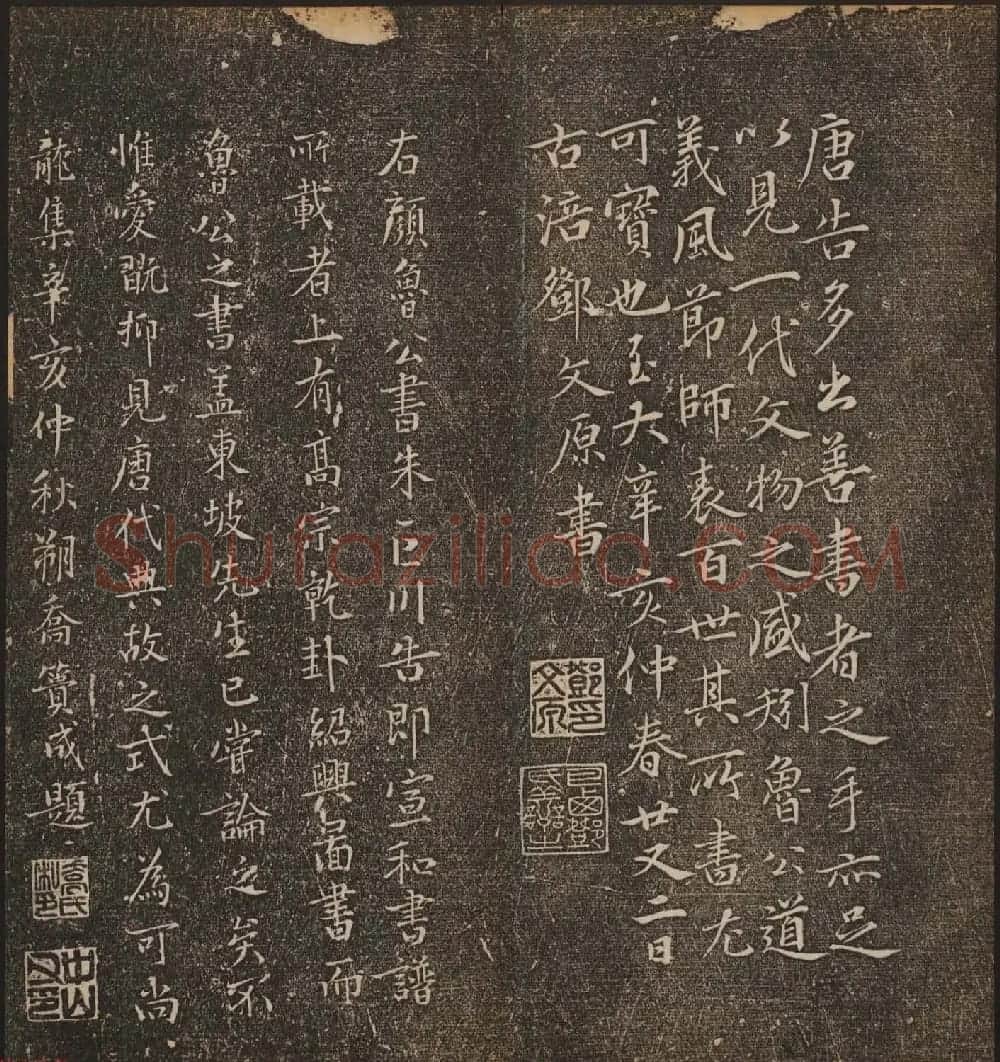 唐告多出善書者之手亦足
以見一代文物之盛矧魯公道
義風節師表百世其所書尤
可寶也至大辛亥仲春廿又二日
古涪鄧文原書
右顏魯公書朱巨川告即宣和書譜
所載者上有高宗乾卦紹興啚書而
魯公之書盖東坡先生已嘗論之矣不
惟愛翫抑見唐代典故之式尤為可尚
龍集辛亥仲秋朔喬簣成題
Shufaziliao.COM